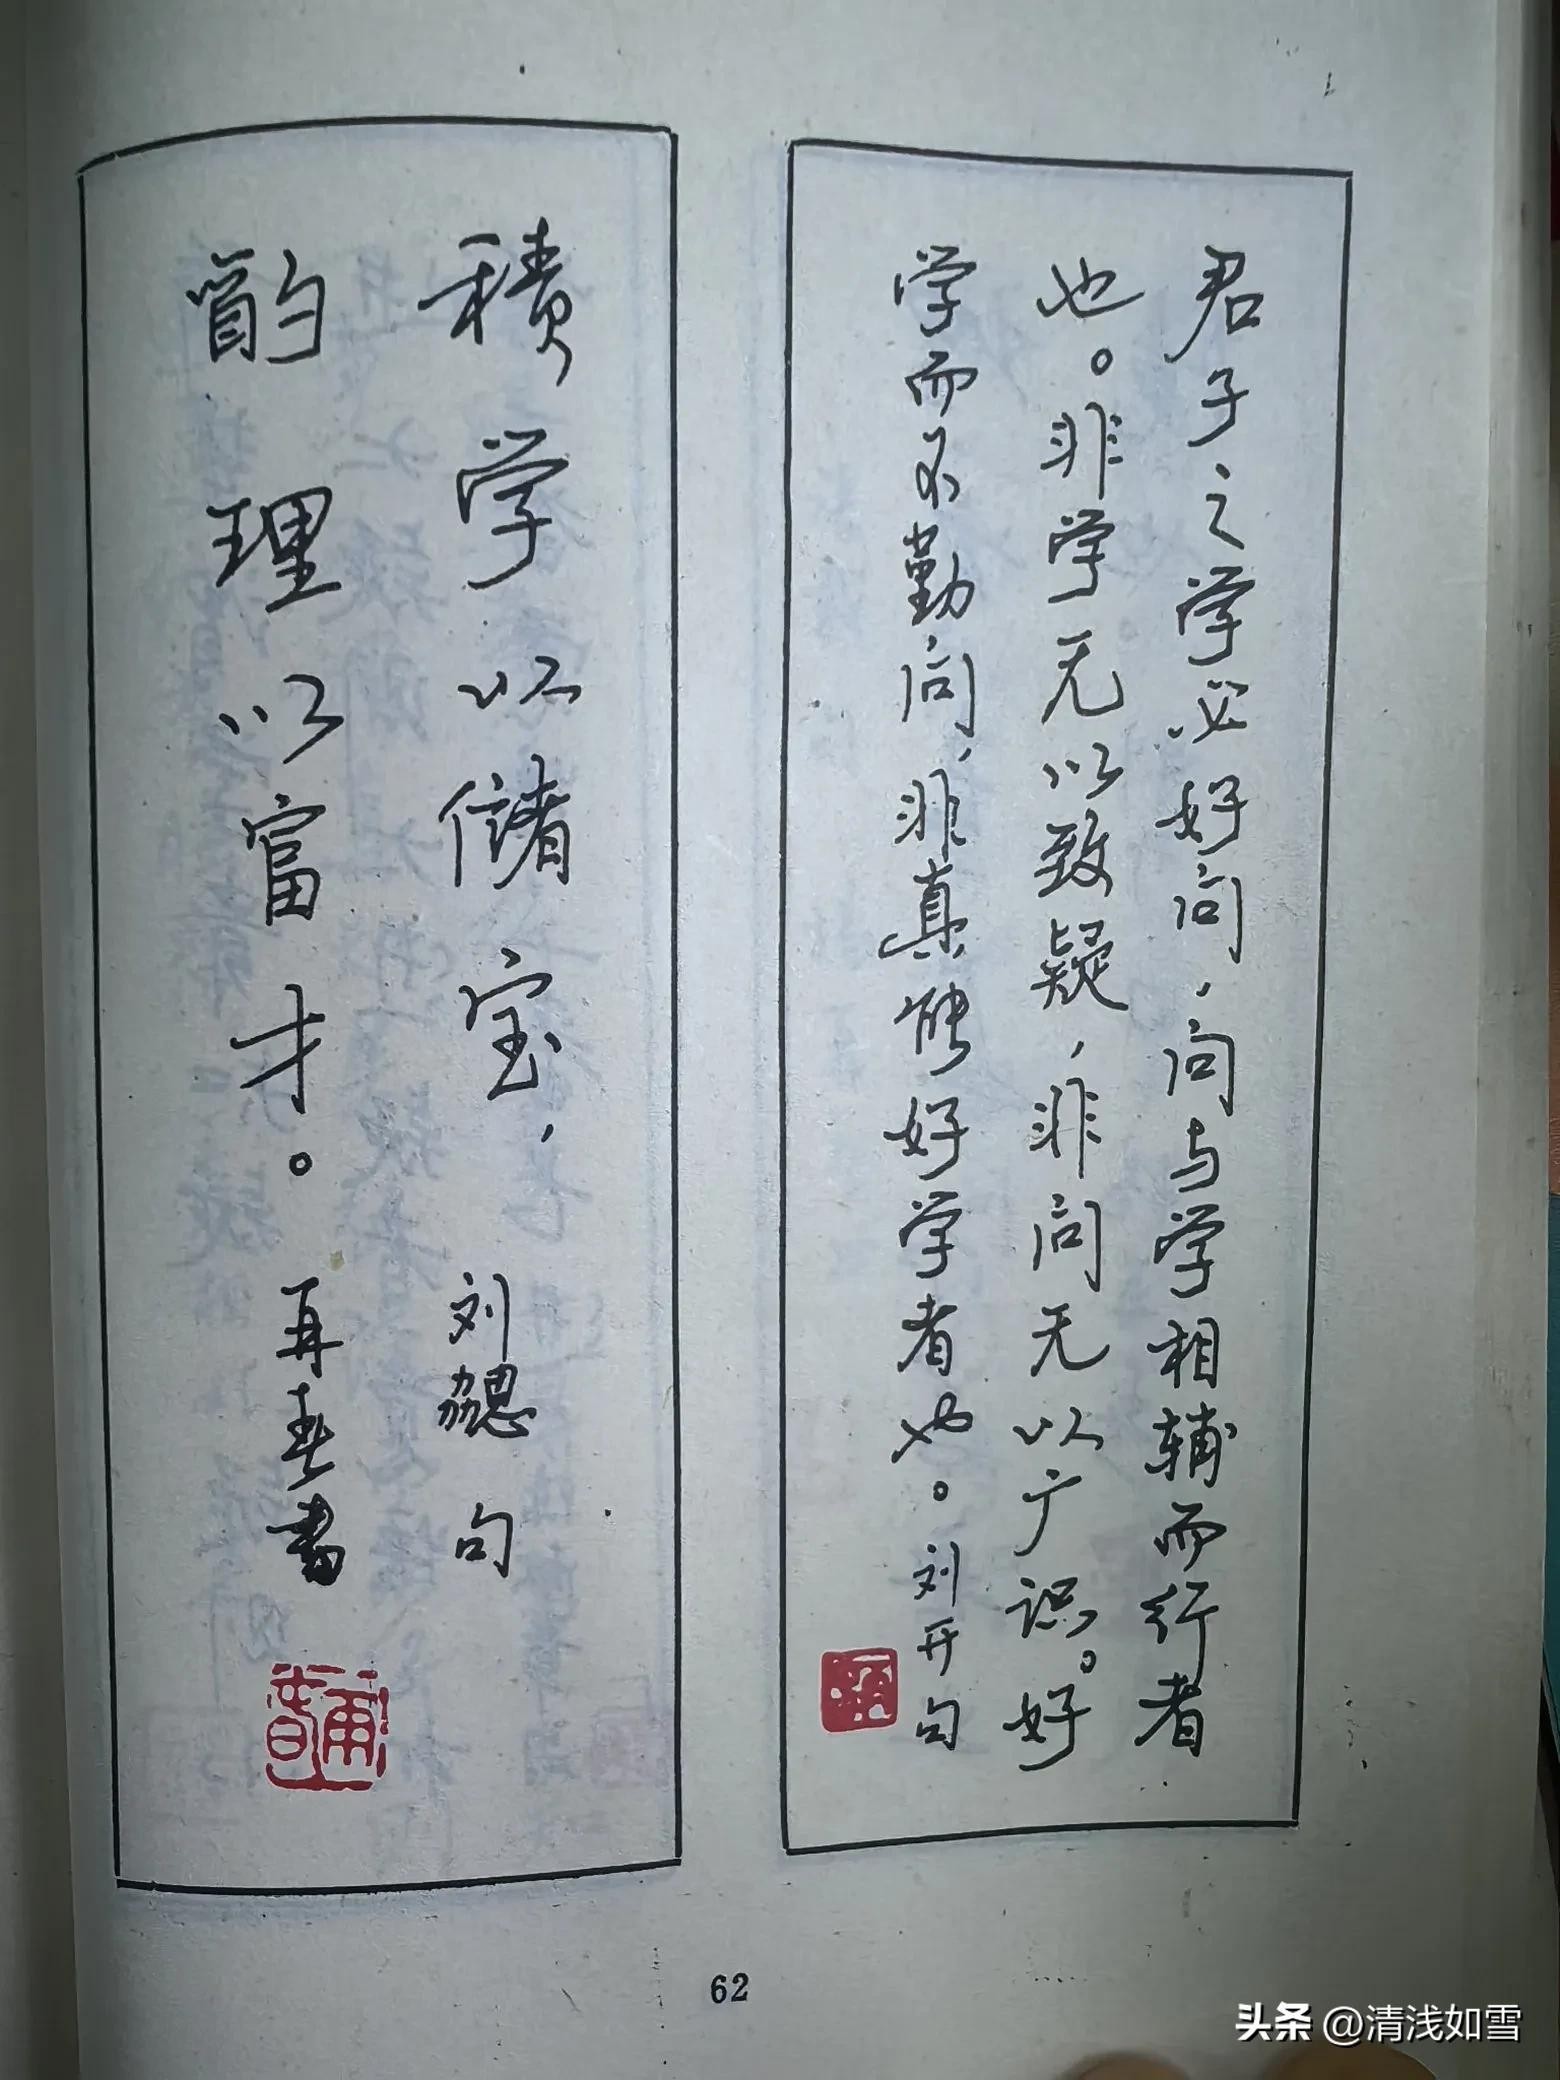 君子之学必好问，问与学相辅而行者
也。非学无以致疑，非问无以广识。好
学而不勤问，非真能好学者也。刘开句
積学以儲宝，刘勰句
酌理以富才。再春书
62
头条 @清浅如雪